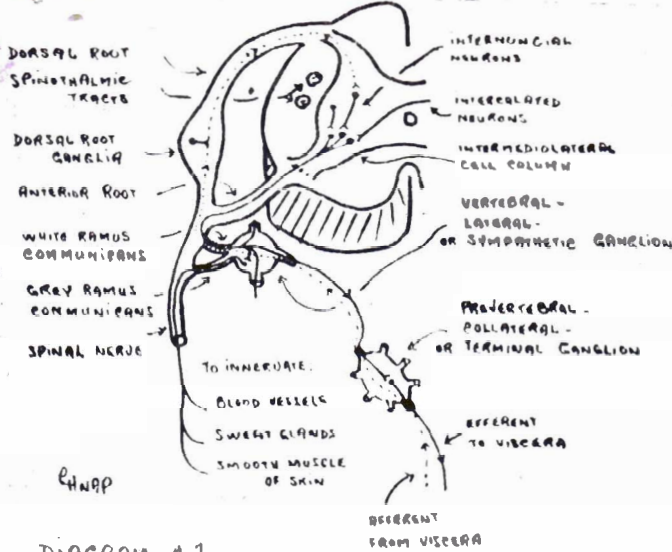 DORSAL ROOT
SPINOTHALMIC
TRACTS
DORSAL ROOT
GANGLIA
ANTERIOR ROOT
WHITE RAMUS
COMMUNICANS
GREY RAMUS
COMMUNICANS
SPINAL NERVE
INTERNUNCIAL
NEURONS
INTERCALATED
NEURONS
INTERMEDIOLATERAL
CELL COLUMN
VERTEBRAL -
LATERAL -
OR SYMPATHETIC GANGLION
PREVERTEBRAL -
COLLATERAL -
OR TERMINAL GANGLION
TO INNERVATE:
BLOOD VESSELS
SWEAT GLANDS
SMOOTH MUSCLE
OF SKIN
EFFERENT
TO VISCERA
AFFERENT
FROM VISCERA
DIAGRAM # 1